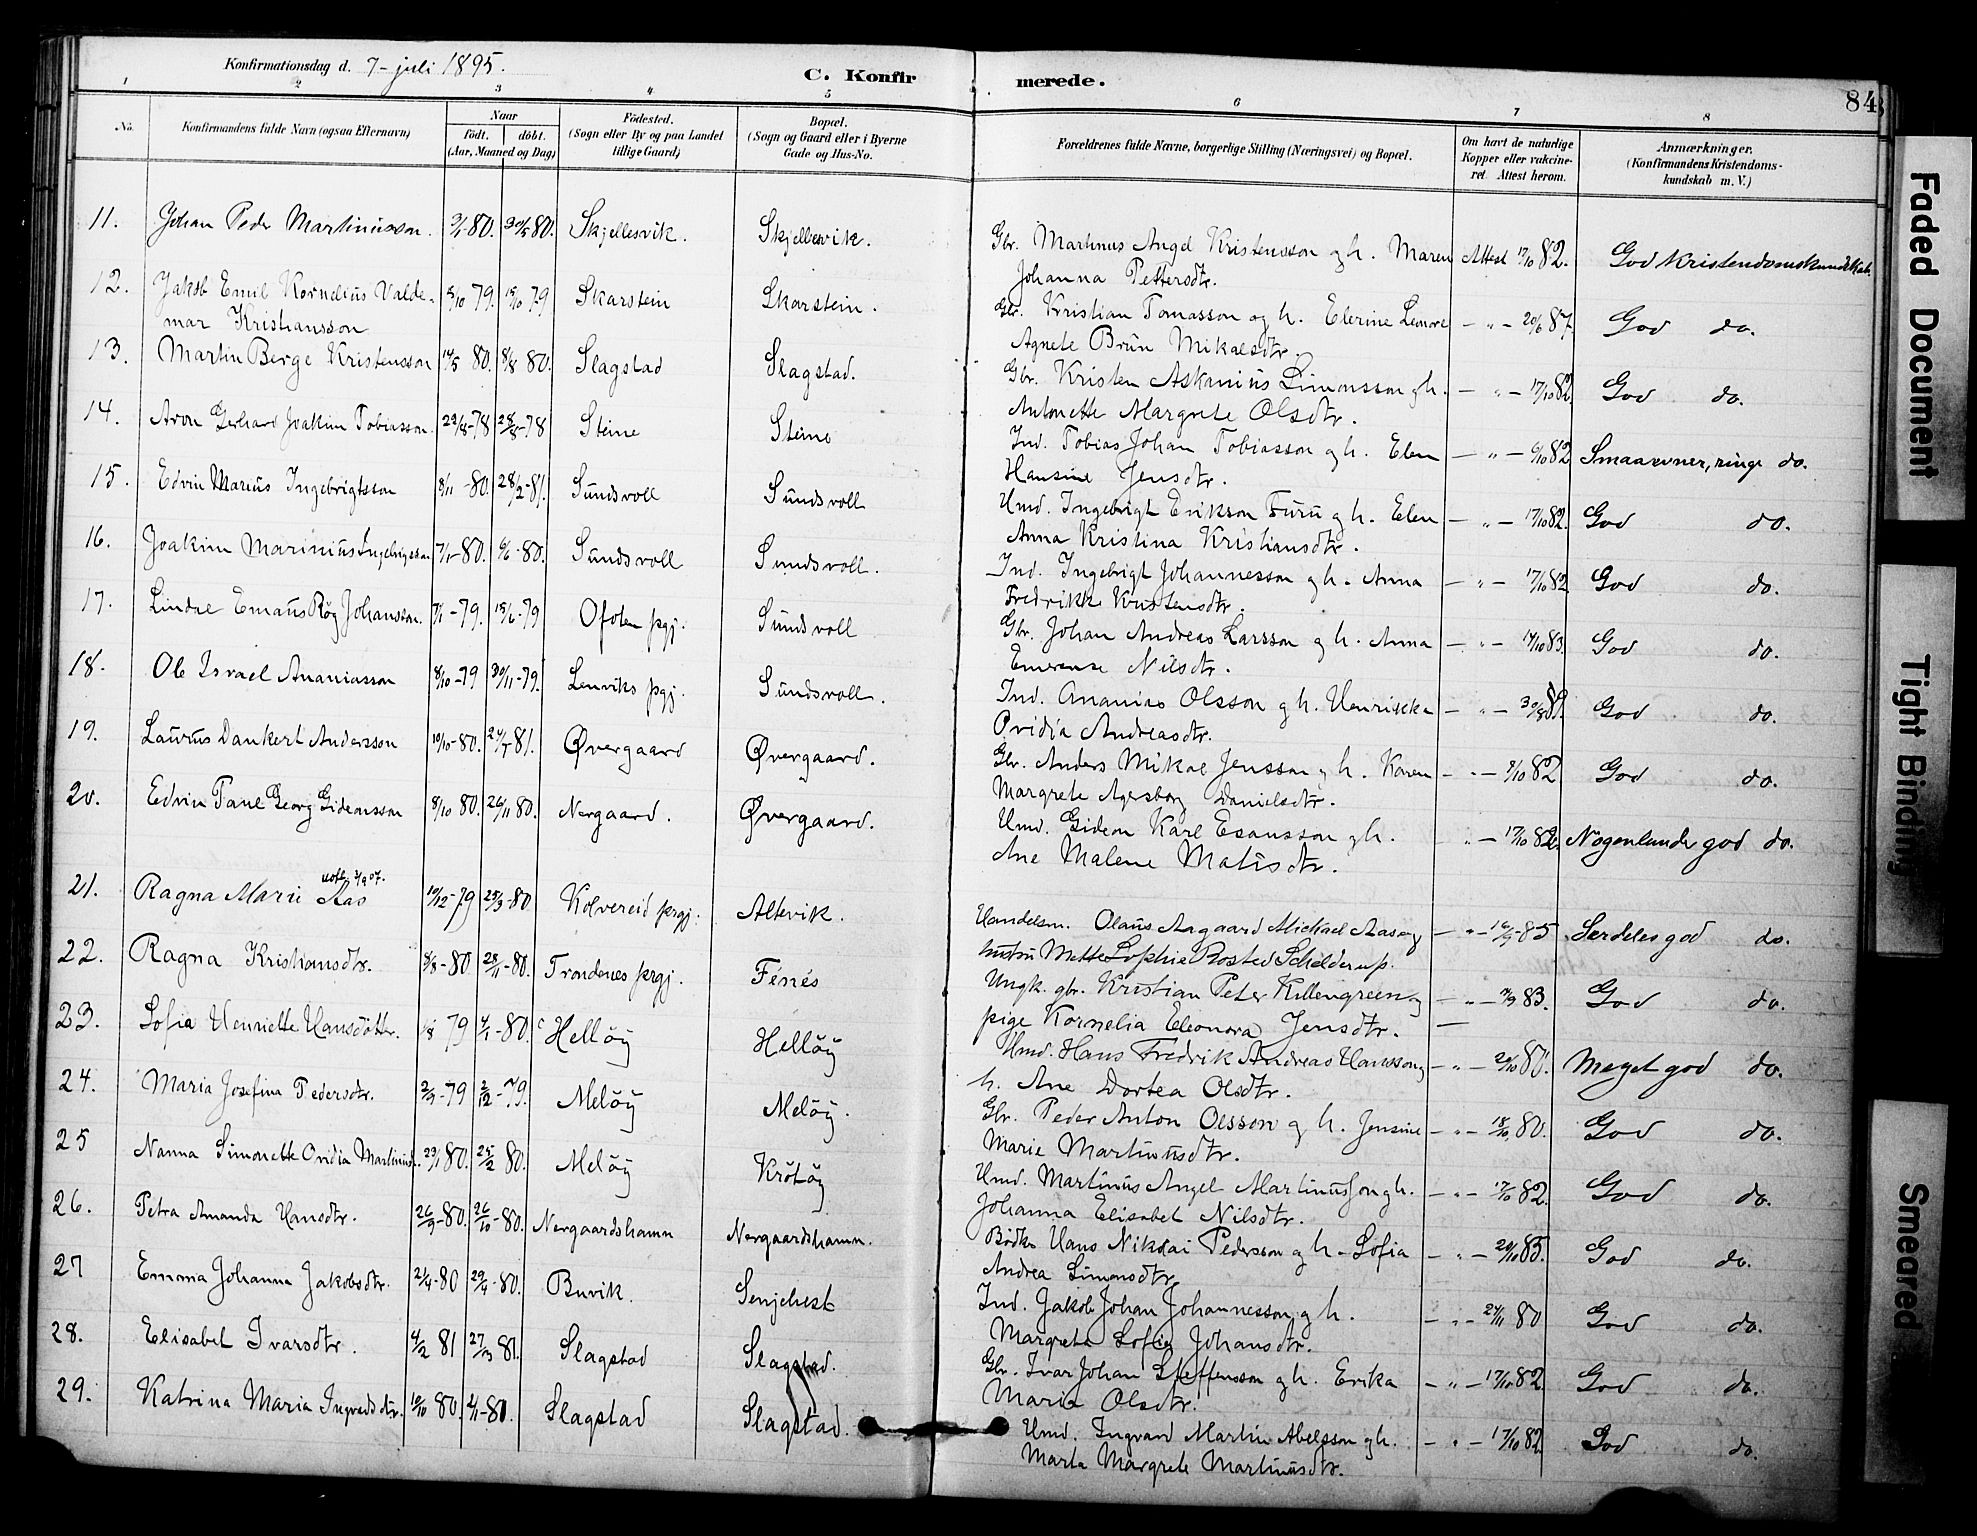 Konfirmationsdag d. 7- juli 1895.
C. Konfirmerede.
84
1 2 3 4 5 6 7 8
No.
Konfirmandens fulde Navn (ogsaa Efternavn)
Naar
födt. döbt.
(Aar, Maaned og Dag)
Födested.
(Sogn eller By og paa Landet
tillige Gaard)
Bopæl.
(Sogn og Gaard eller i Byerne
Gade og Hus-No.
Forældrenes fulde Navne, borgerlige Stilling (Næringsvei) og Bopæl.
Om havt de naturlige
Kopper eller vakcine-
ret. Attest herom.
Anmærkninger.
(Konfirmandens Kristendoms-
kundskab m. V.)
11. Johan Peder Martinusson. 80. 30/5 80. Skjellesvik. Skjellesvik. Gbr. Martinus Angel Kristensson og h. Maren Attest 17/10 82. God Kristendomskundskab.
Johanna Pettersdtr.
12. Jakob Emil Kornelius Valde- 79. 15/10 79 Skarstein Skarstein. Gbr. Kristian Tomasson og h. Elerine Lenore - " - 20/6 87. God do.
mar Kristiansson Agnete Brun Mikalsdtr.
13. Martin Berge Kristensson 14/5 80. 8/8 80. Slagstad Slagstad. Gbr. Kristen Askanius Simonsson og h. - " - 17/10 82. God do.
Antonette Margrete Olsdtr.
14. Aron Gerhard Joakim Tobiasson. 22/8-78 28/8-78 Steine Steine Ind. Tobias Johan Tobiasson og h. Elen - " - 6/10 82 Smaaevner, ringe do.
Hansine Jensdtr.
15. Edvin Marius Ingebrigtsson 8/11-80. 28/2-81. Sundsvoll Sundsvoll Umd. Ingebrigt Erikson Furu og h. Elen - " - 17/10 82. God do.
Anna Kristina Kristiansdtr.
16. Joakim Marinius Ingebrigtsson 80. 6/6-80. Sundsvoll Sundsvoll. Ind. Ingebrigt Johannesson og h. Anna - " - 17/10 82. God do.
Fredrikke Kristensdtr.
17. Emaus Røg Johansson. 7/1-79. 15/6-79 Ofoten pgj. Sundsvoll Gbr. Johan Andreas Larsson og h. Anna - " - 14/10 83. God do.
Emerense Nilsdtr.
18. Ole Israel Ananiasson 8/10-79 30/11-79. Lenviks pgj. Sundsvoll. Ind. Ananias Olsson og h. Henrikka - " - 30/8 God do.
Ovidia Andreasdtr.
19. Laurus Dankert Andersson 10/10-80. 81. Øvergaard Øvergaard. Gbr. Anders Mikal Jensson og h. Karen - " - 9/10 82 God do.
Margrete Agersborg Danielsdtr.
20. Edvin Paul Georg Gideonsson 8/10 80. 26/11 80. Nergaard. Øvergaard. Umd. Gideon Karl Esausson og h. - " - 17/10 82. Nogenlunde god do.
Ane Malene Matisdtr.
21. Ragna Marie Aas 10/12-79 25/3-80 Kolvereid prgj. Altevik. Handelsm. Olaus Aagaard Michael Aas og - " - 85 Særdeles god do.
hustru Mette Sophie Rosted Schelderup.
22. Ragna Kristiansdtr. 80 28/11-80. Trondenes prgj. Fenes Ungk. gbr. Kristian Peter Killengreen og - " - 83. God do.
pige Kornelia Eleonora Jensdtr. -
23. Sofia Henriette Hansdotter. 79 4/1-80. Helløy Helløy Umd. Hans Fredrik Andreas Hansson og - " - 20/10 80. Meget god do.
h. Ane Dortea Olsdtr.
24. Maria Josefina Pedersdtr. 79 2/12-79. Meløy Meløy. Gbr. Peder Anton Olsson og h. Jensine - " - 18/10 80. God do.
Marie Martinusdtr.
25 Nanna Simonette Ovidia Martinusd. 29/1 80. 25/2 80. Meløy Krøtøy Umd. Martinus Angel Martinusson og h. - " - 17/10 82. God do.
Johanna Elisabet Nilsdtr.
26. Petra Amanda Hansdtr. 26/9-80. 26/10-80. Nergaardshamn Nergaardshamn. Bødker Hans Nikolai Pedersson og h. Sofia - " - 20/10 85. God do.
Andrea Simonsdtr.
27 Emma Johanna Jakobsdtr. 2/4-80 29/4-80. Buvik. Senjehest Ind. Jakob Johan Johannesson og h. - " - 24/11 80 God do.
Margreta Sofia Johansdtr.
28. Elisabet Ivarsdtr. 4/2 81 27/3 81. Slagstad Slagstad. Gbr. Ivar Johan Steffensson og h. Erika - " - 17/10 82. God do.
Maria Olsdtr.
29. Katrina Maria Ingvardsdtr. 10/10 80. 81. Slagstad Slagstad. Umd. Ingvard Martin Abelsson og h. - " - 17/10 82. God do.
Marta Margrete Martinusdtr.
Faded Document
Tight Binding
Smeared